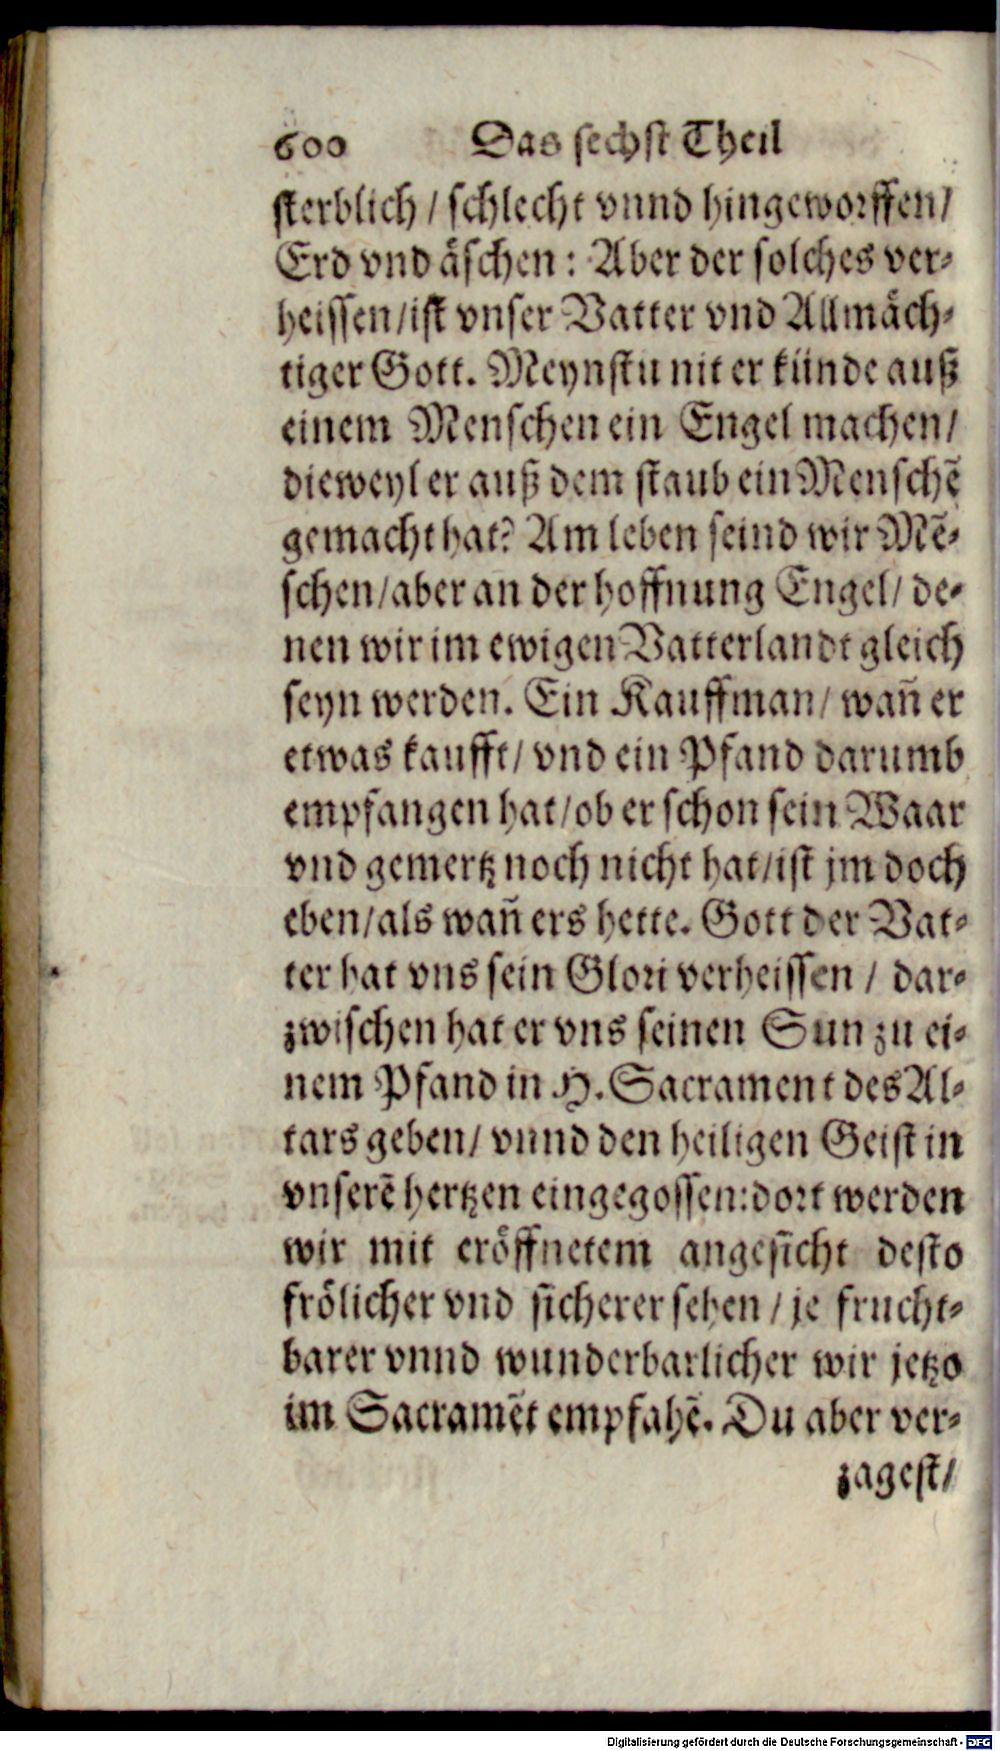 600 Das sechst Theil
sterblich / schlecht vnnd hingeworffen /
Erd vnd äschen : Aber der solches ver-
heissen / ist vnser Vatter vnd Allmäch-
tiger Gott. Meynstu nit er künde auß
einem Menschen ein Engel machen /
dieweyl er auß dem staub ein Menschē
gemacht hat? Am leben seind wir Mē-
schen / aber an der hoffnung Engel / de-
nen wir im ewigen Vatterlandt gleich
seyn werden. Ein Kauffman / wañ er
etwas kaufft / vnd ein Pfand darumb
empfangen hat / ob er schon sein Waar
vnd gemertz noch nicht hat / ist jm doch
eben / als wañ ers hette. Gott der Vat-
ter hat vns sein Glori verheissen / dar-
zwischen hat er vns seinen Sun zu ei-
nem Pfand in H. Sacrament des Al-
tars geben / vnnd den heiligen Geist in
vnserē hertzen eingegossen: dort werden
wir mit eröffnetem angesicht desto
frölicher vnd sicherer sehen / je frucht-
barer vnnd wunderbarlicher wir jetzo
im Sacramēt empfahē. Du aber ver-
zagest /
Digitalisierung gefördert durch die Deutsche Forschungsgemeinschaft - DFG